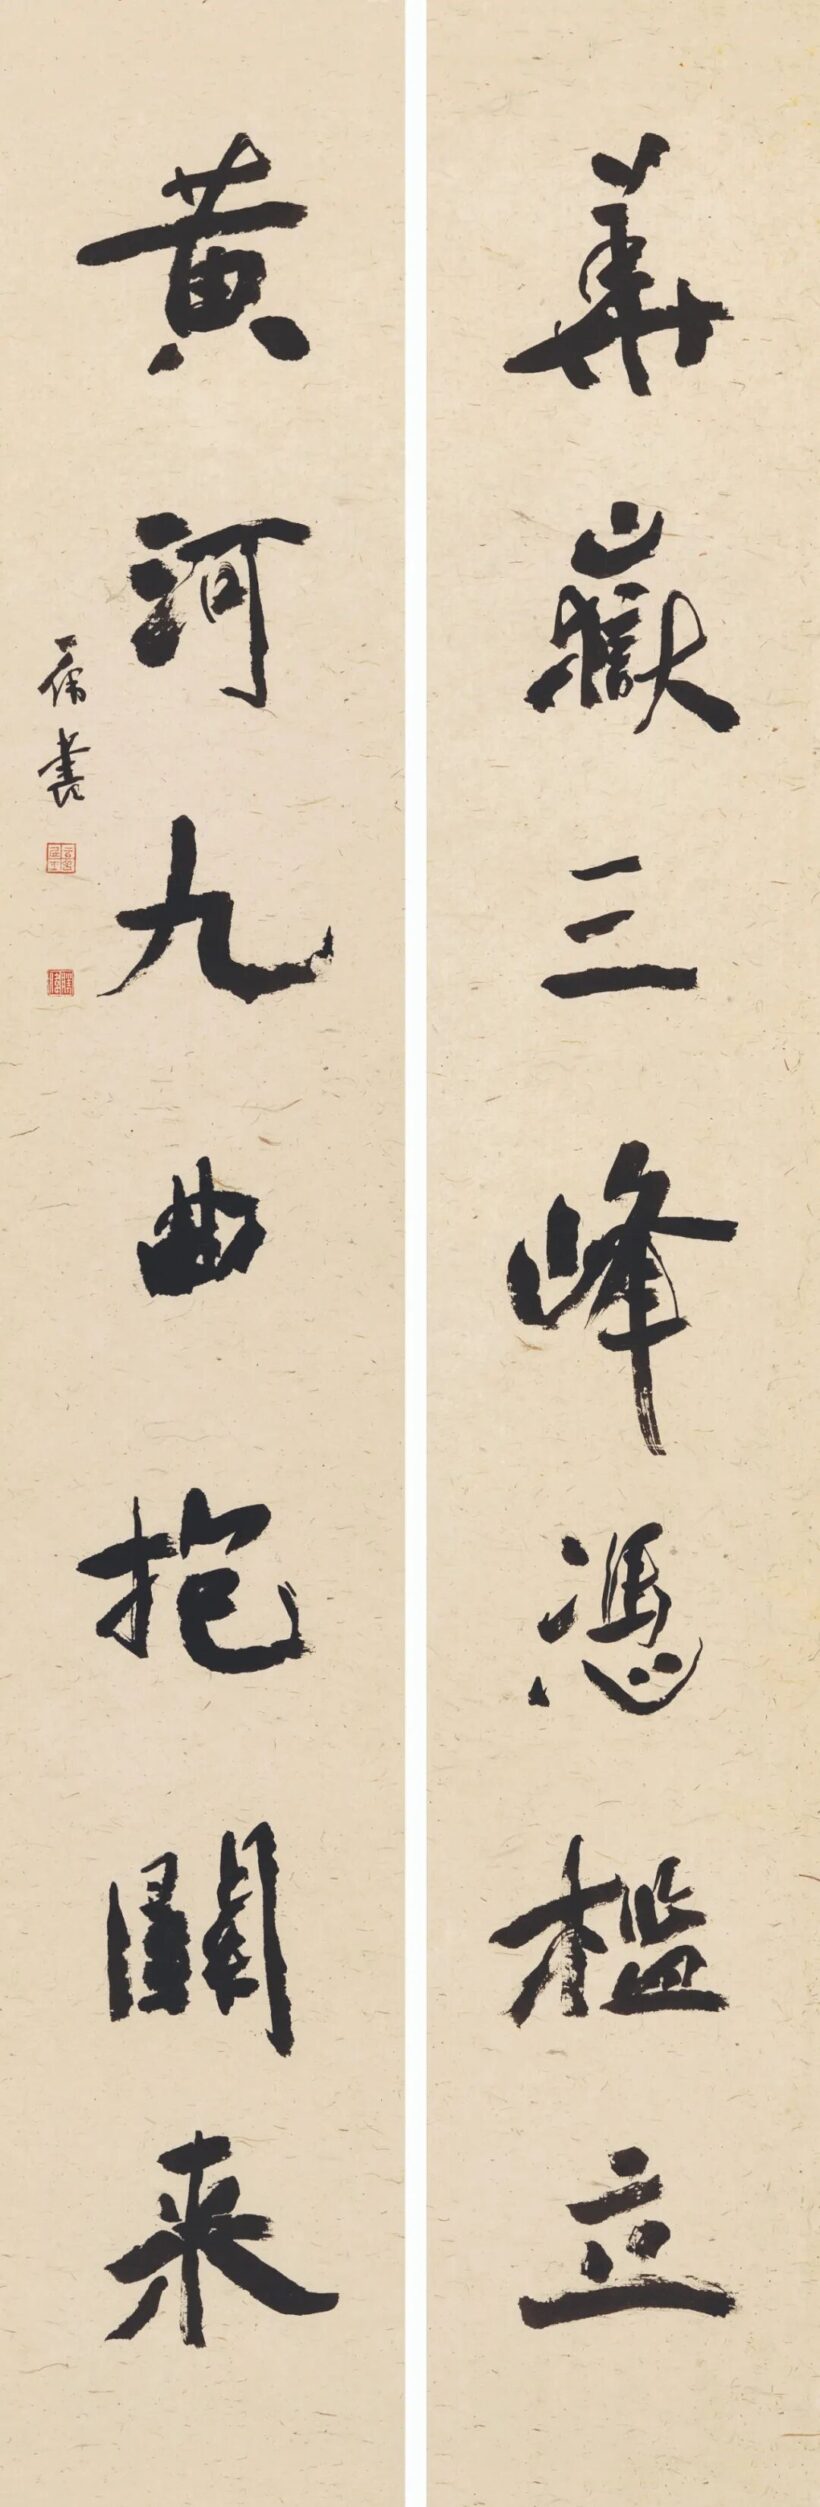 華嶽三峰憑檻立
黃河九曲抱關来
書